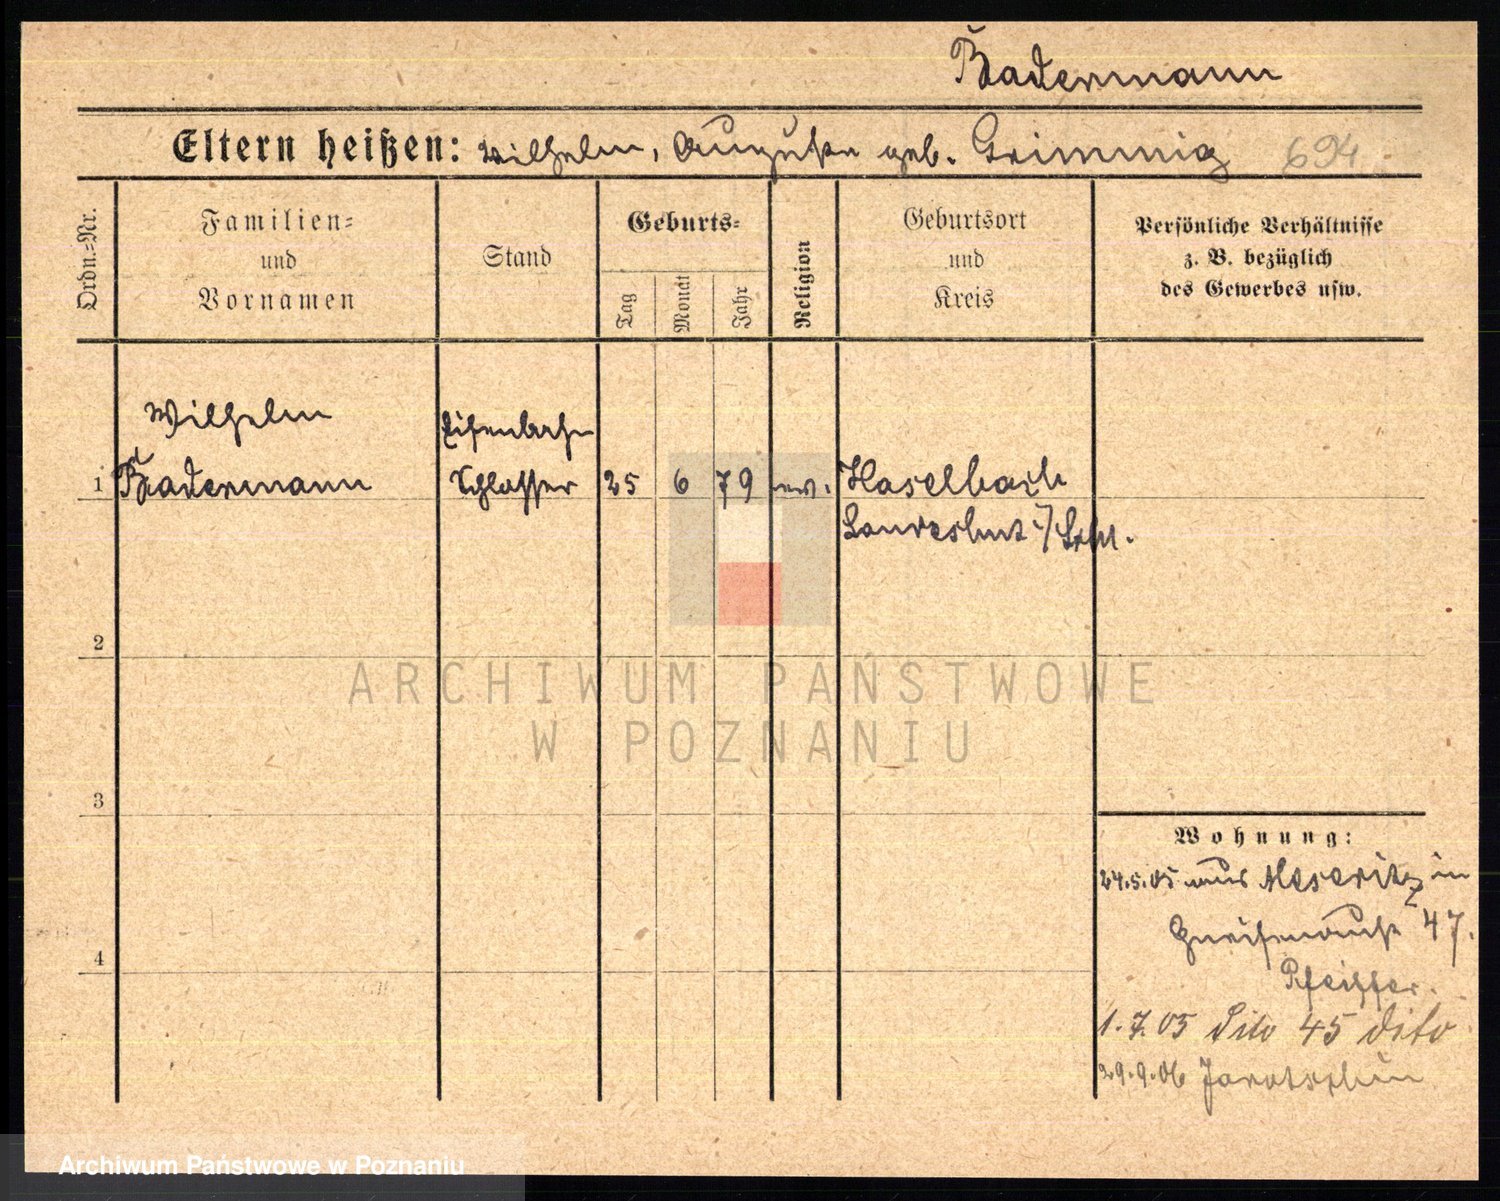 Badermann
Eltern heißen: Wilhelm, Auguste geb. Grimmig 694
Ordn.=Nr.
Familien=
und
Vornamen
Stand
Geburts=
Tag
Monat
Jahr
Religion
Geburtsort
und
Kreis
Persönliche Verhältnisse
z. B. bezüglich
des Gewerbes usw.
Wilhelm Eisenbahn
1 Badermann Schlosser 25 6 79 ev. Haselbach
Landeshut i/Schl.
2
ARCHIWUM PAŃSTWOWE
W POZNANIU
3
Wohnung:
24.5.05 aus Meseritz in
Gneisenaustr 47.
4
Pfeiffer.
1.7.05 dito 45 dito
29.9.06 Jarotschin
Archiwum Państwowe w Poznaniu